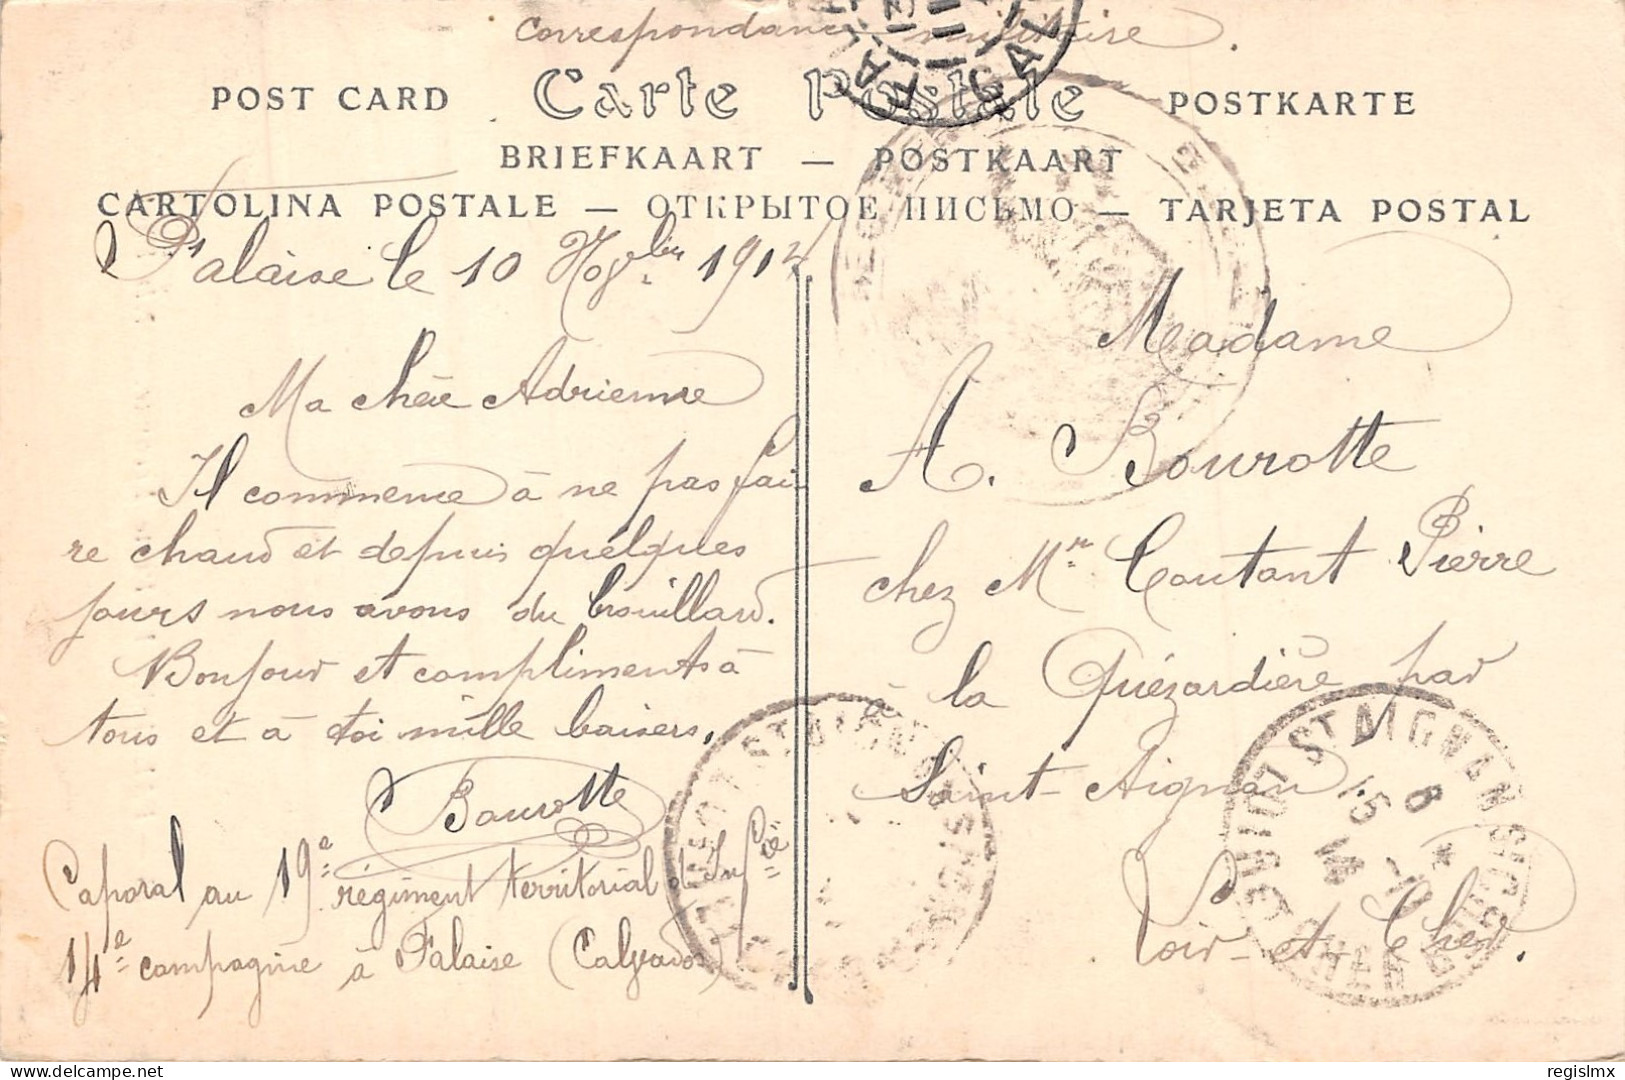 Correspondance militaire.
POST CARD Carte Postale POSTKARTE
BRIEFKAART — POSTKAART
CARTOLINA POSTALE — ОТКРЫТОЕ ПИСЬМО — TARJETA POSTAL
Falaise le 10 Novbre 1914
Ma chère Adrienne
Il commence à ne pas fai
re chaud et depuis quelques
jours nous avons du brouillard.
Bonjour et compliments à
tous et à toi mille baisers.
Bourotte
Caporal au 19e régiment territorial d'Infie
14e compagnie à Falaise (Calvados)
Madame
A. Bourotte
chez Mr Coutant Pierre
à la Quézardière par
Saint-Aignan.
Loir-et-Cher.
ST AIGNAN SUR CHER
LOIR ET CHER
15
14
regislmx